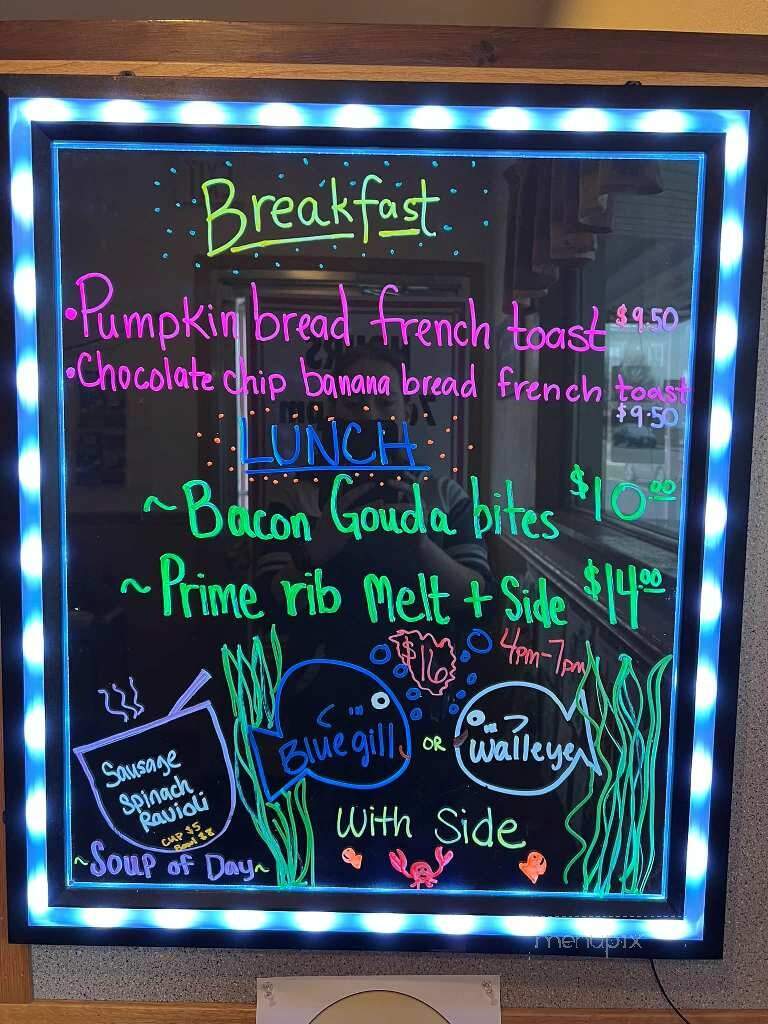 Breakfast
•Pumpkin bread french toast $9.50
•Chocolate chip banana bread french toast
$9.50
LUNCH
~Bacon Gouda bites $10.00
~Prime rib Melt + Side $14.00
$16
4pm-7pm
Bluegill OR Walleye
With Side
Sausage
Spinach
Ravioli
CUP $5
Bowl $8
~Soup of Day~
menupix